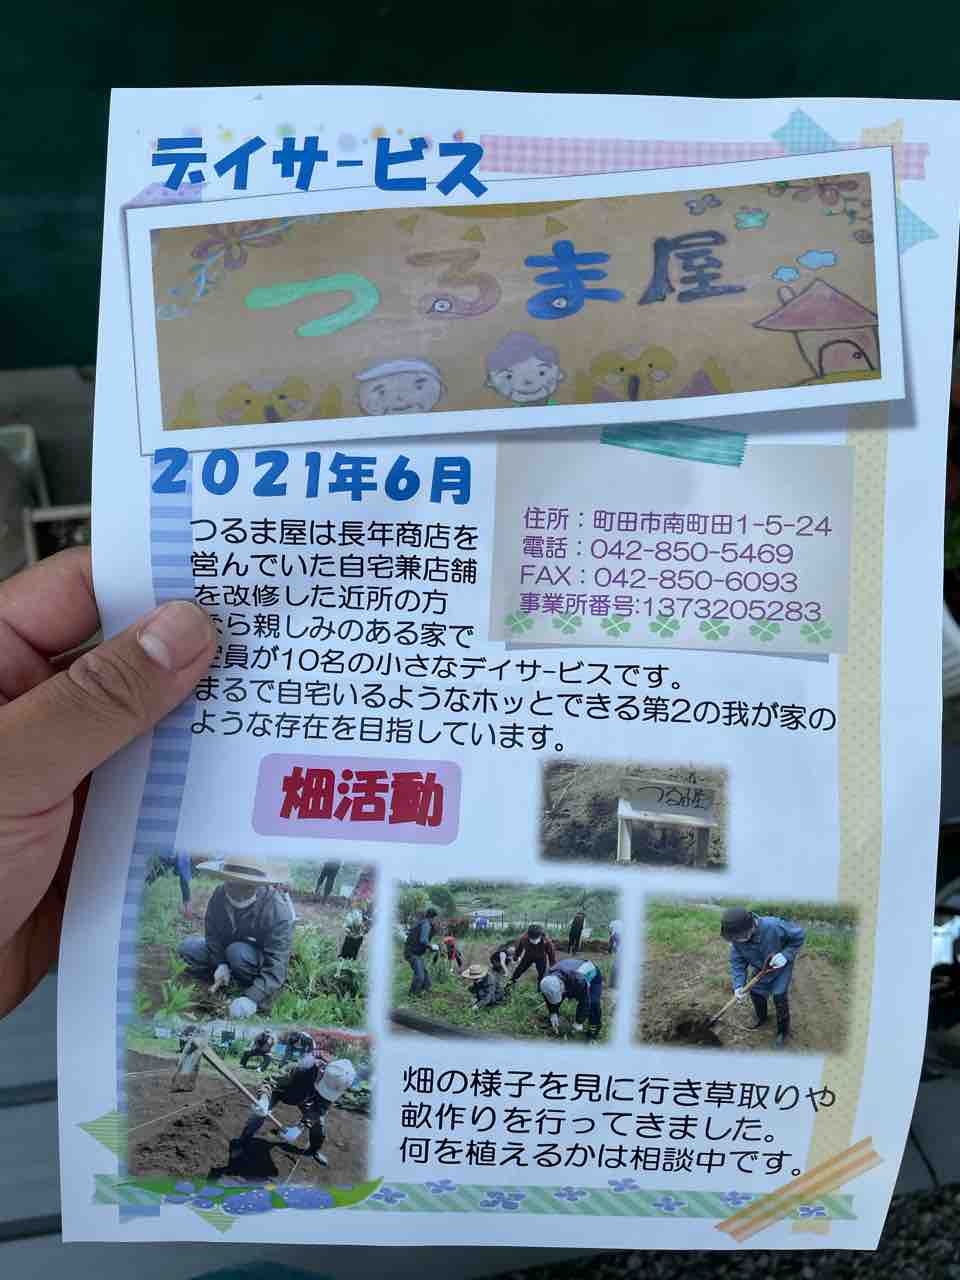 デイサービス
つるま屋
2021年6月
つるま屋は長年商店を
営んでいた自宅兼店舗
を改修した近所の方
なら親しみのある家で
定員が10名の小さなデイサービスです。
まるで自宅いるようなホッとできる第2の我が家の
ような存在を目指しています。
住所：町田市南町田1-5-24
電話：042-850-5469
FAX：042-850-6093
事業所番号:1373205283
畑活動
つるま屋
畑の様子を見に行き草取りや
畝作りを行ってきました。
何を植えるかは相談中です。